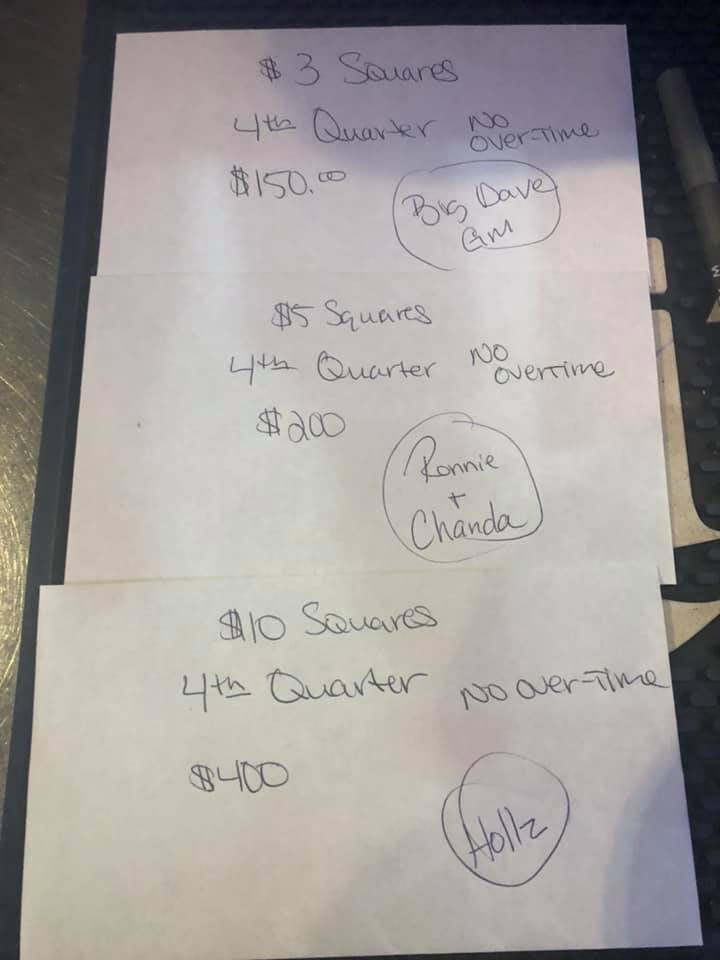 $3 Squares
4th Quarter No over-time
$150.00
Big Dave
GM
$5 Squares
4th Quarter No overtime
$200
Ronnie
+
Chanda
$10 Squares
4th Quarter No over-time
$400